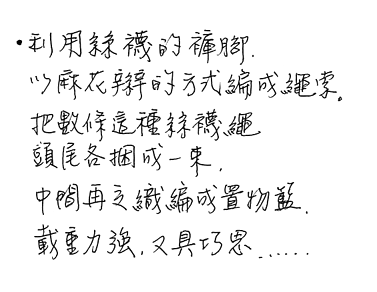 •利用絲襪的褲腳.
以麻花辮的方式編成繩索。
把數條這種絲襪繩
頭尾各捆成一束,
中間再交織編成置物籃.
載重力強,又具巧思......